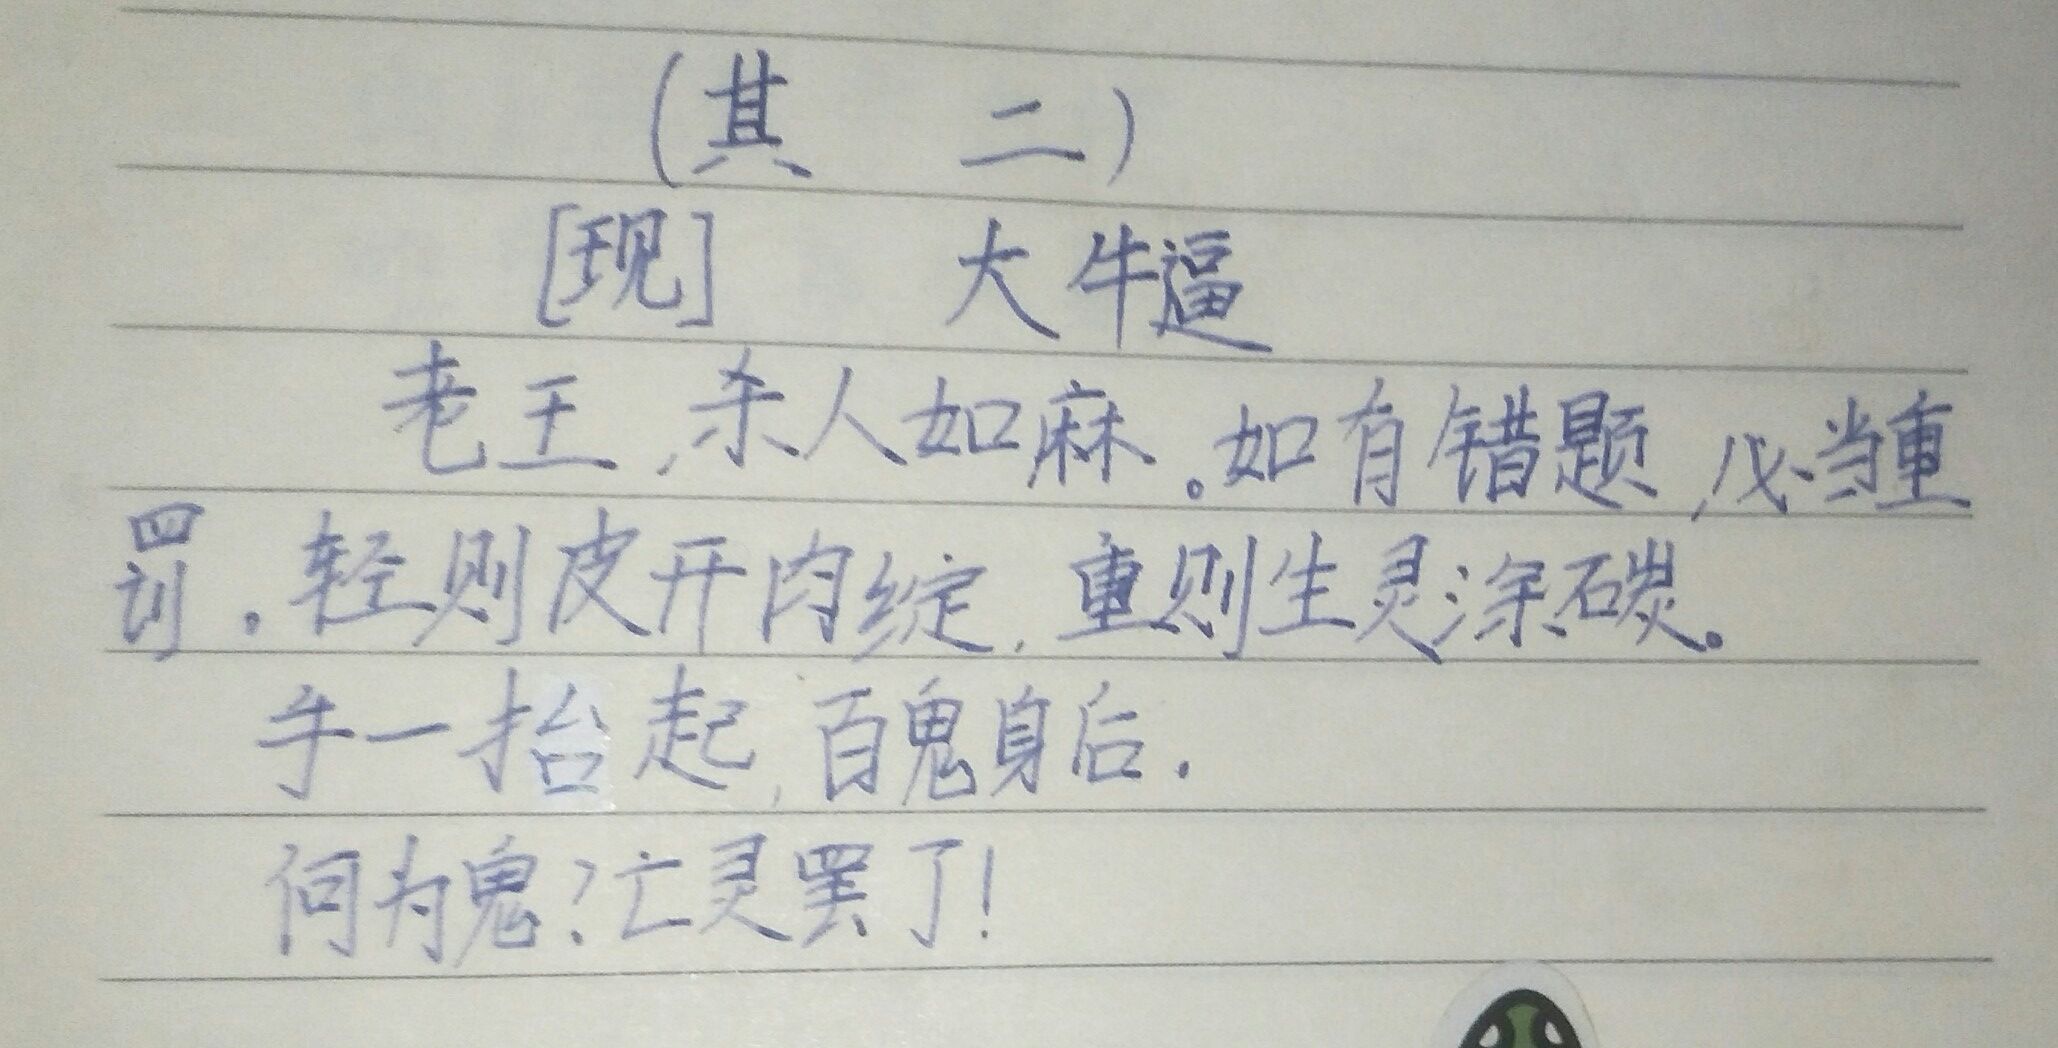 （其 二）
[现] 大牛逼
老王，杀人如麻。如有错题，必当重
罚．轻则皮开肉绽，重则生灵涂碳。
手一抬起，百鬼身后．
何为鬼？亡灵罢了！